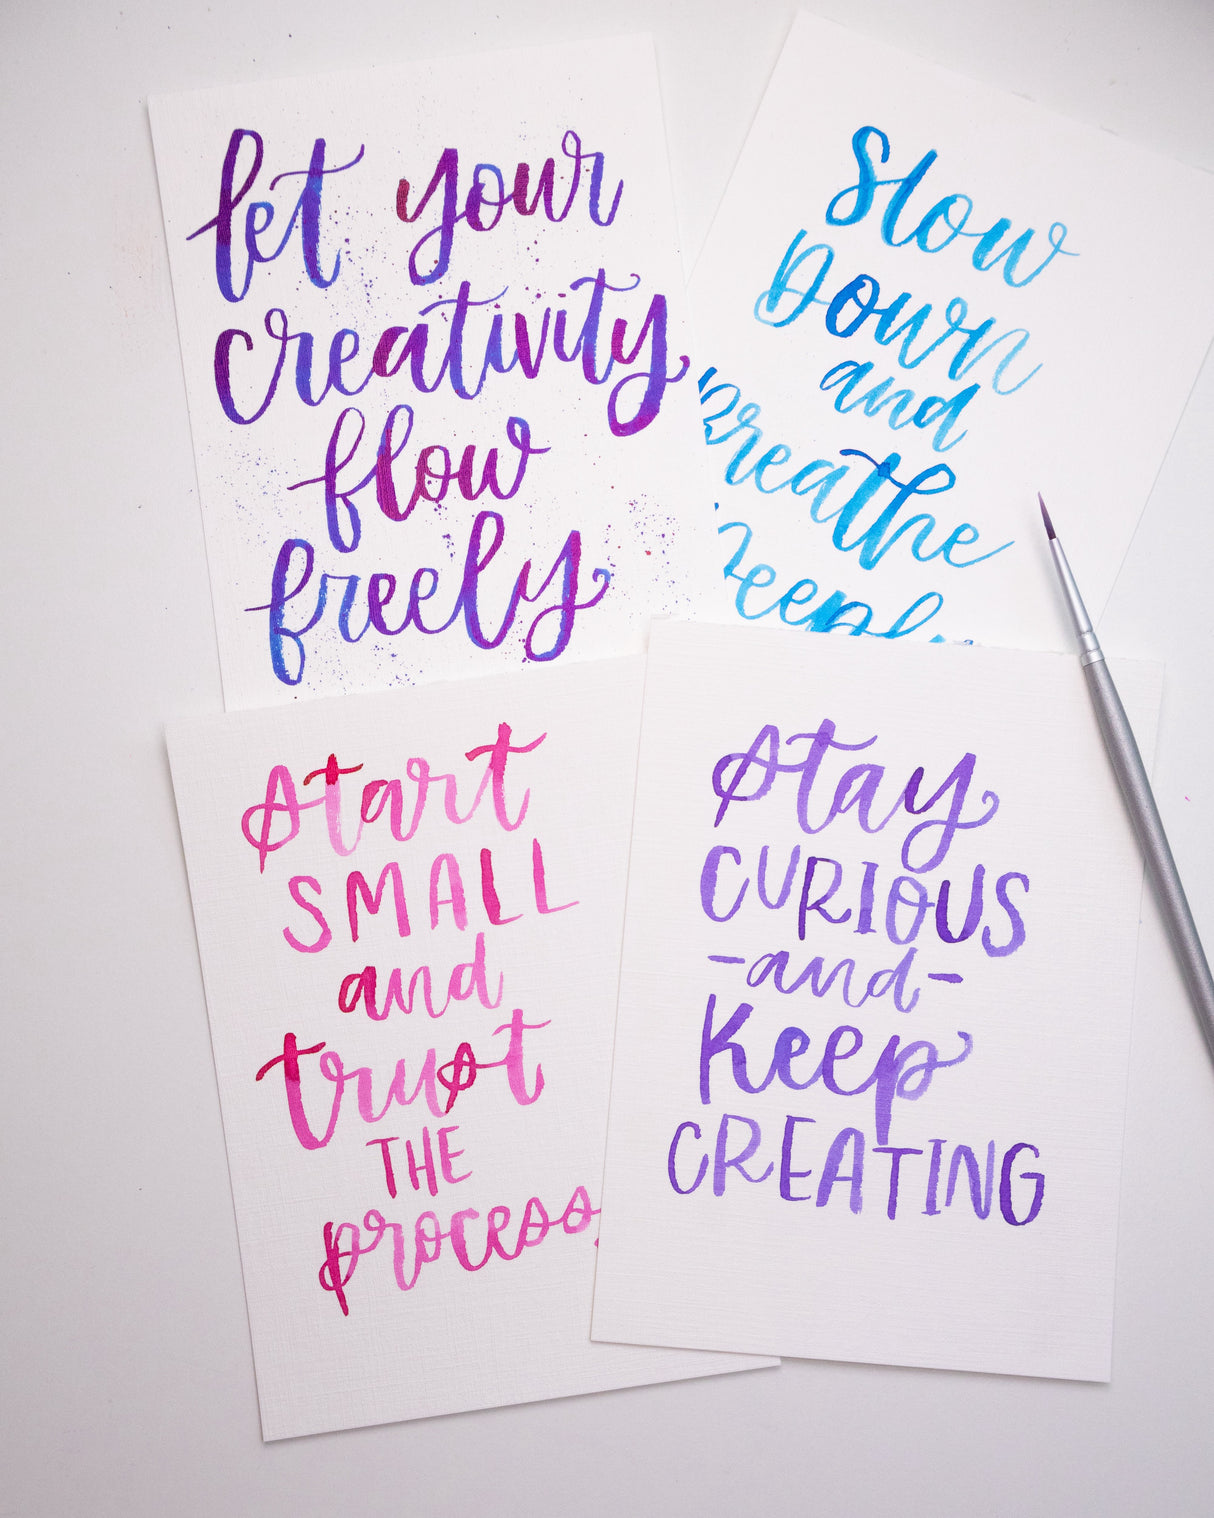 let your
creativity
flow
freely
Slow
Down
and
Breathe
Deeply
Start
SMALL
and
trust
THE
process
Stay
CURIOUS
-and-
Keep
CREATING